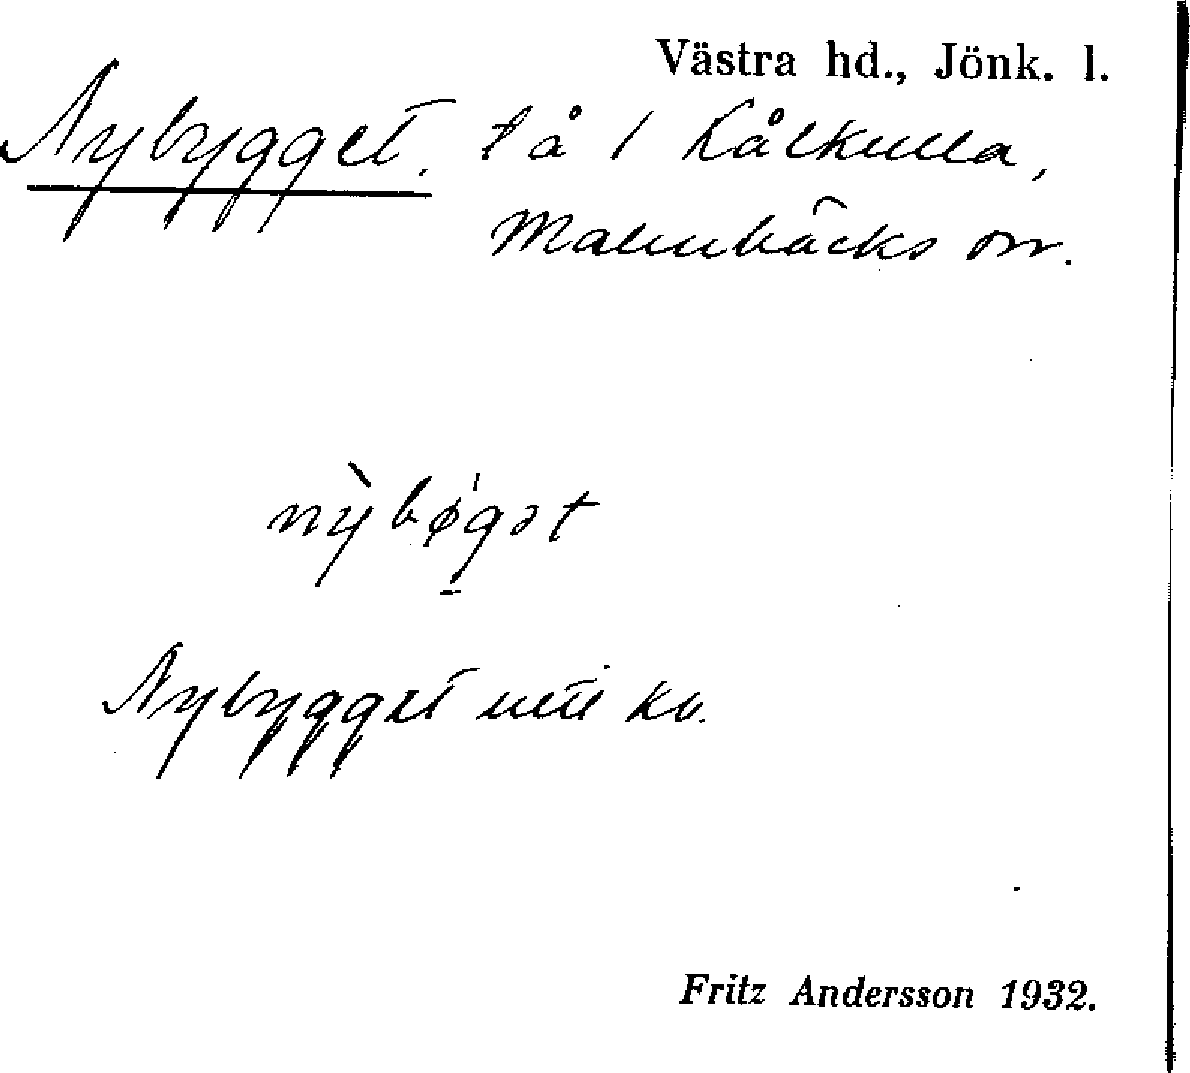 Västra hd., Jönk. l.
Nybygget. tå 1 Kålkulla,
Malmbäcks sn.
nỳbø̍gət
Nybygget utie kv.
Fritz Andersson 1932.